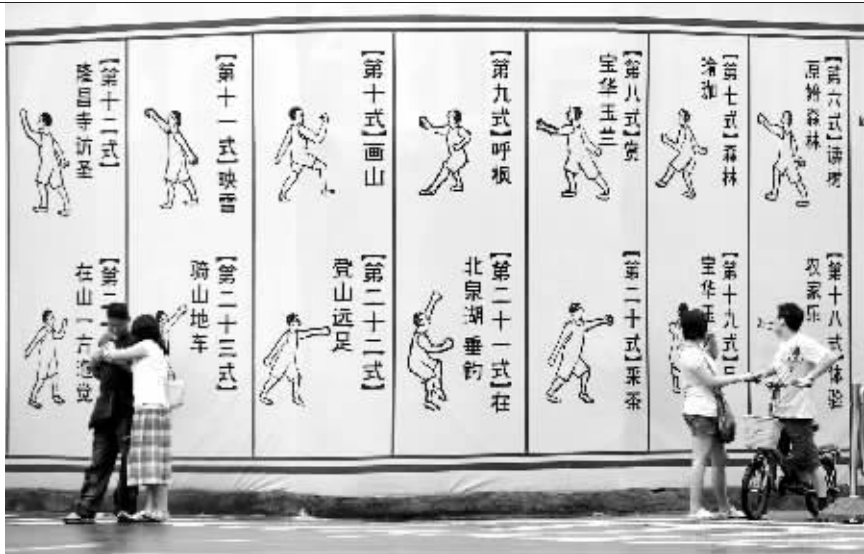 【第六式】读树
原始森林
【第七式】森林
瑜珈
【第八式】赏
宝华玉兰
【第九式】呼枫
【第十式】画山
【第十一式】映雪
【第十二式】
隆昌寺访圣
【第十八式】体验
农家乐
【第十九式】
宝华玉
【第二十式】采茶
【第二十一式】在
北泉湖垂钓
【第二十二式】
登山远足
【第二十三式】
骑山地车
【第二
在山一方